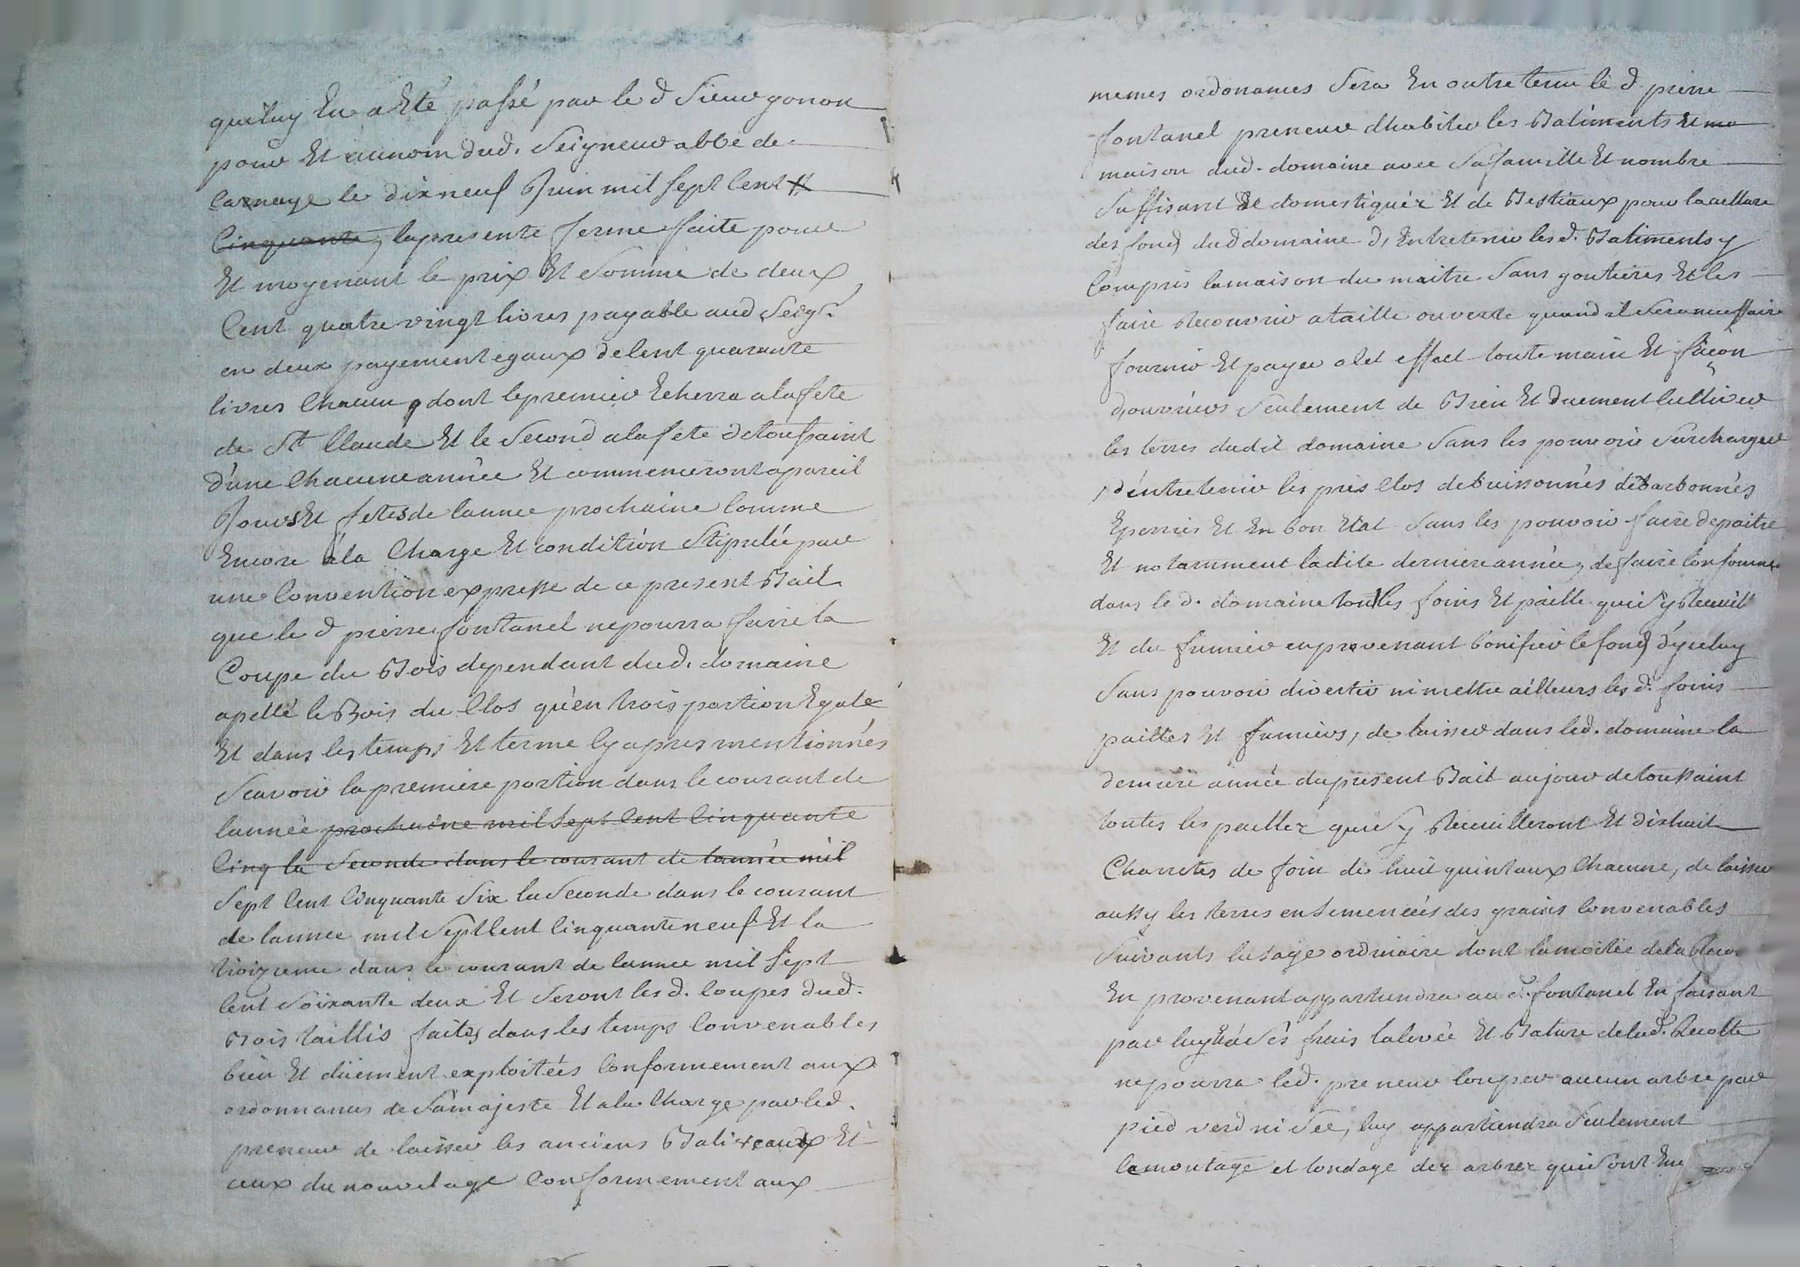 quil luy En a Eté passé par le d Sieur gonon
pour Et aunom dud. Seigneur abbé de
Carnage le dixneuf Juin mil sept Cent
Cinquante, la presente ferme faite pour
Et moyenant le prix Et Somme de deux
Cent quatre vingt livres payable aud Seigr.
en deux payement egaux de Cent quarante
livres Chacun, dont le premier Echerra a la fete
de St Claude Et le Second a la fete de toussaint
d'une Chacune année Et commenceront a pareil
Jours Et fetes de lannee prochaine Comme
Encore a la Charge Et condition Stipulée par
une Convention expresse de ce present Bail
que le d pierre fontanel ne pourra faire la
Coupe du Bois dependant dud. domaine
apellé le Bois du Clos qu'en trois portion Egale
Et dans les temps Et terme Cy apres mentionnés
Scavoir la premiere portion dans le courant de
lannée prochaine mil Sept Cent Cinquante
Cinq la Seconde dans le courant de lannée mil
Sept Cent Cinquante Six la Seconde dans le courant
de lannee mil Sept Cent Cinquante neuf Et la
troizieme dans le courant de lannee mil Sept
Cent Soixante deux Et Seront les d. Coupes dud.
Bois taillis faites dans les temps Convenables
bien Et düement exploitées Conformement aux
ordonnances de Sa majeste Et a la Charge par led.
preneur de laisser les anciens Baliveaux Et
ceux du nouvel age Conformement aux
memes ordonances Sera En outre tenu le d. pierre
fontanel preneur dhabiter les Batiments Et
maison dud. domaine avec Sa famille Et nombre
Suffisant de domestiques Et de Bestiaux pour la culture
des fonds dud domaine d'Entretenir les d. Batiments y
Compris la maison du maitre Sans goutieres Et les
faire Recouvrir a taille ouverte quand il Sera necessaire
fournir Et payer a cet effet toute main Et façon
d'ouvriers Seulement de Bien Et duement Cultiver
les terres dudit domaine Sans les pouvoir Surcharger
d'entretenir les prés Clos debuissonnés debarbonnés
Eperrés Et En bon Etat Sans les pouvoir faire depaitre
Et notamment ladite derniere année, de faire Consommer
dans le d. domaine tout les foins Et paille qui Sy Recueil
Et du fumier en provenant bonifier le fond d'yceluy
Sans pouvoir divertir ni mettre ailleurs les d. foins
pailles Et fumiers, de laisser dans led. domaine la
derniere année du present Bail au jour de toussaint
toutes les pailles qui Sy Recueilleront Et dixhuit
Charretes de foin de huit quintaux Chacune, de laisser
aussy les terres ensemencées des grains Convenables
Suivants lusage ordinaire dont la moitié de la
En provenant appartiendra au d. fontanel En faisant
par luy Et a Ses frais la levée Et Bature de lad. Recolte
ne pourra led. preneur Couper aucun arbre par
pied verd ni Sec, luy appartiendra Seulement
lemontage et tondage des arbres qui Sont En